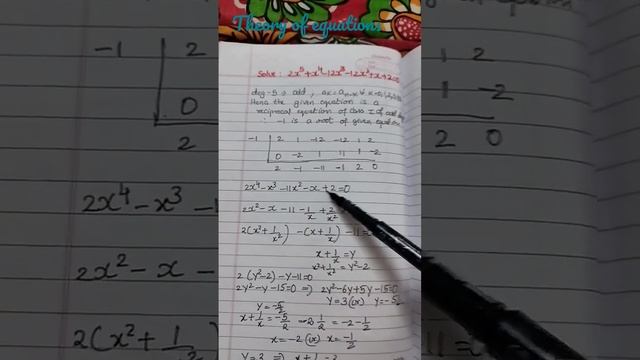 Theory of equations
Solve : 2x⁵+x⁴-12x³-12x²+x+2=0
deg-5 → odd,
Hence the given equation is a
reciprocal equation of class I of odd
∴ -1 is a root of given equation
-1 | 2 1 -12 -12 1 2
0 -2 1 11 1 -2
2 -1 -11 -1 2 0
2x⁴-x³-11x²-x+2=0
2x²-x-11-1/x+2/x²
2(x²+1/x²) -(x+1/x)-11=
x+1/x=y
x²+1/x²=y²-2
2(y²-2)-y-11=0
2y²-y-15=0 ⇒ 2y²-6y+5y-15=0
y=3 (or) y=-5
y=-5/2
x+1/x=-5/2 =-2 1/2 =-2-1/2
x=-2 (or) x=-1/2
y=3 ⇒ x+1 -3